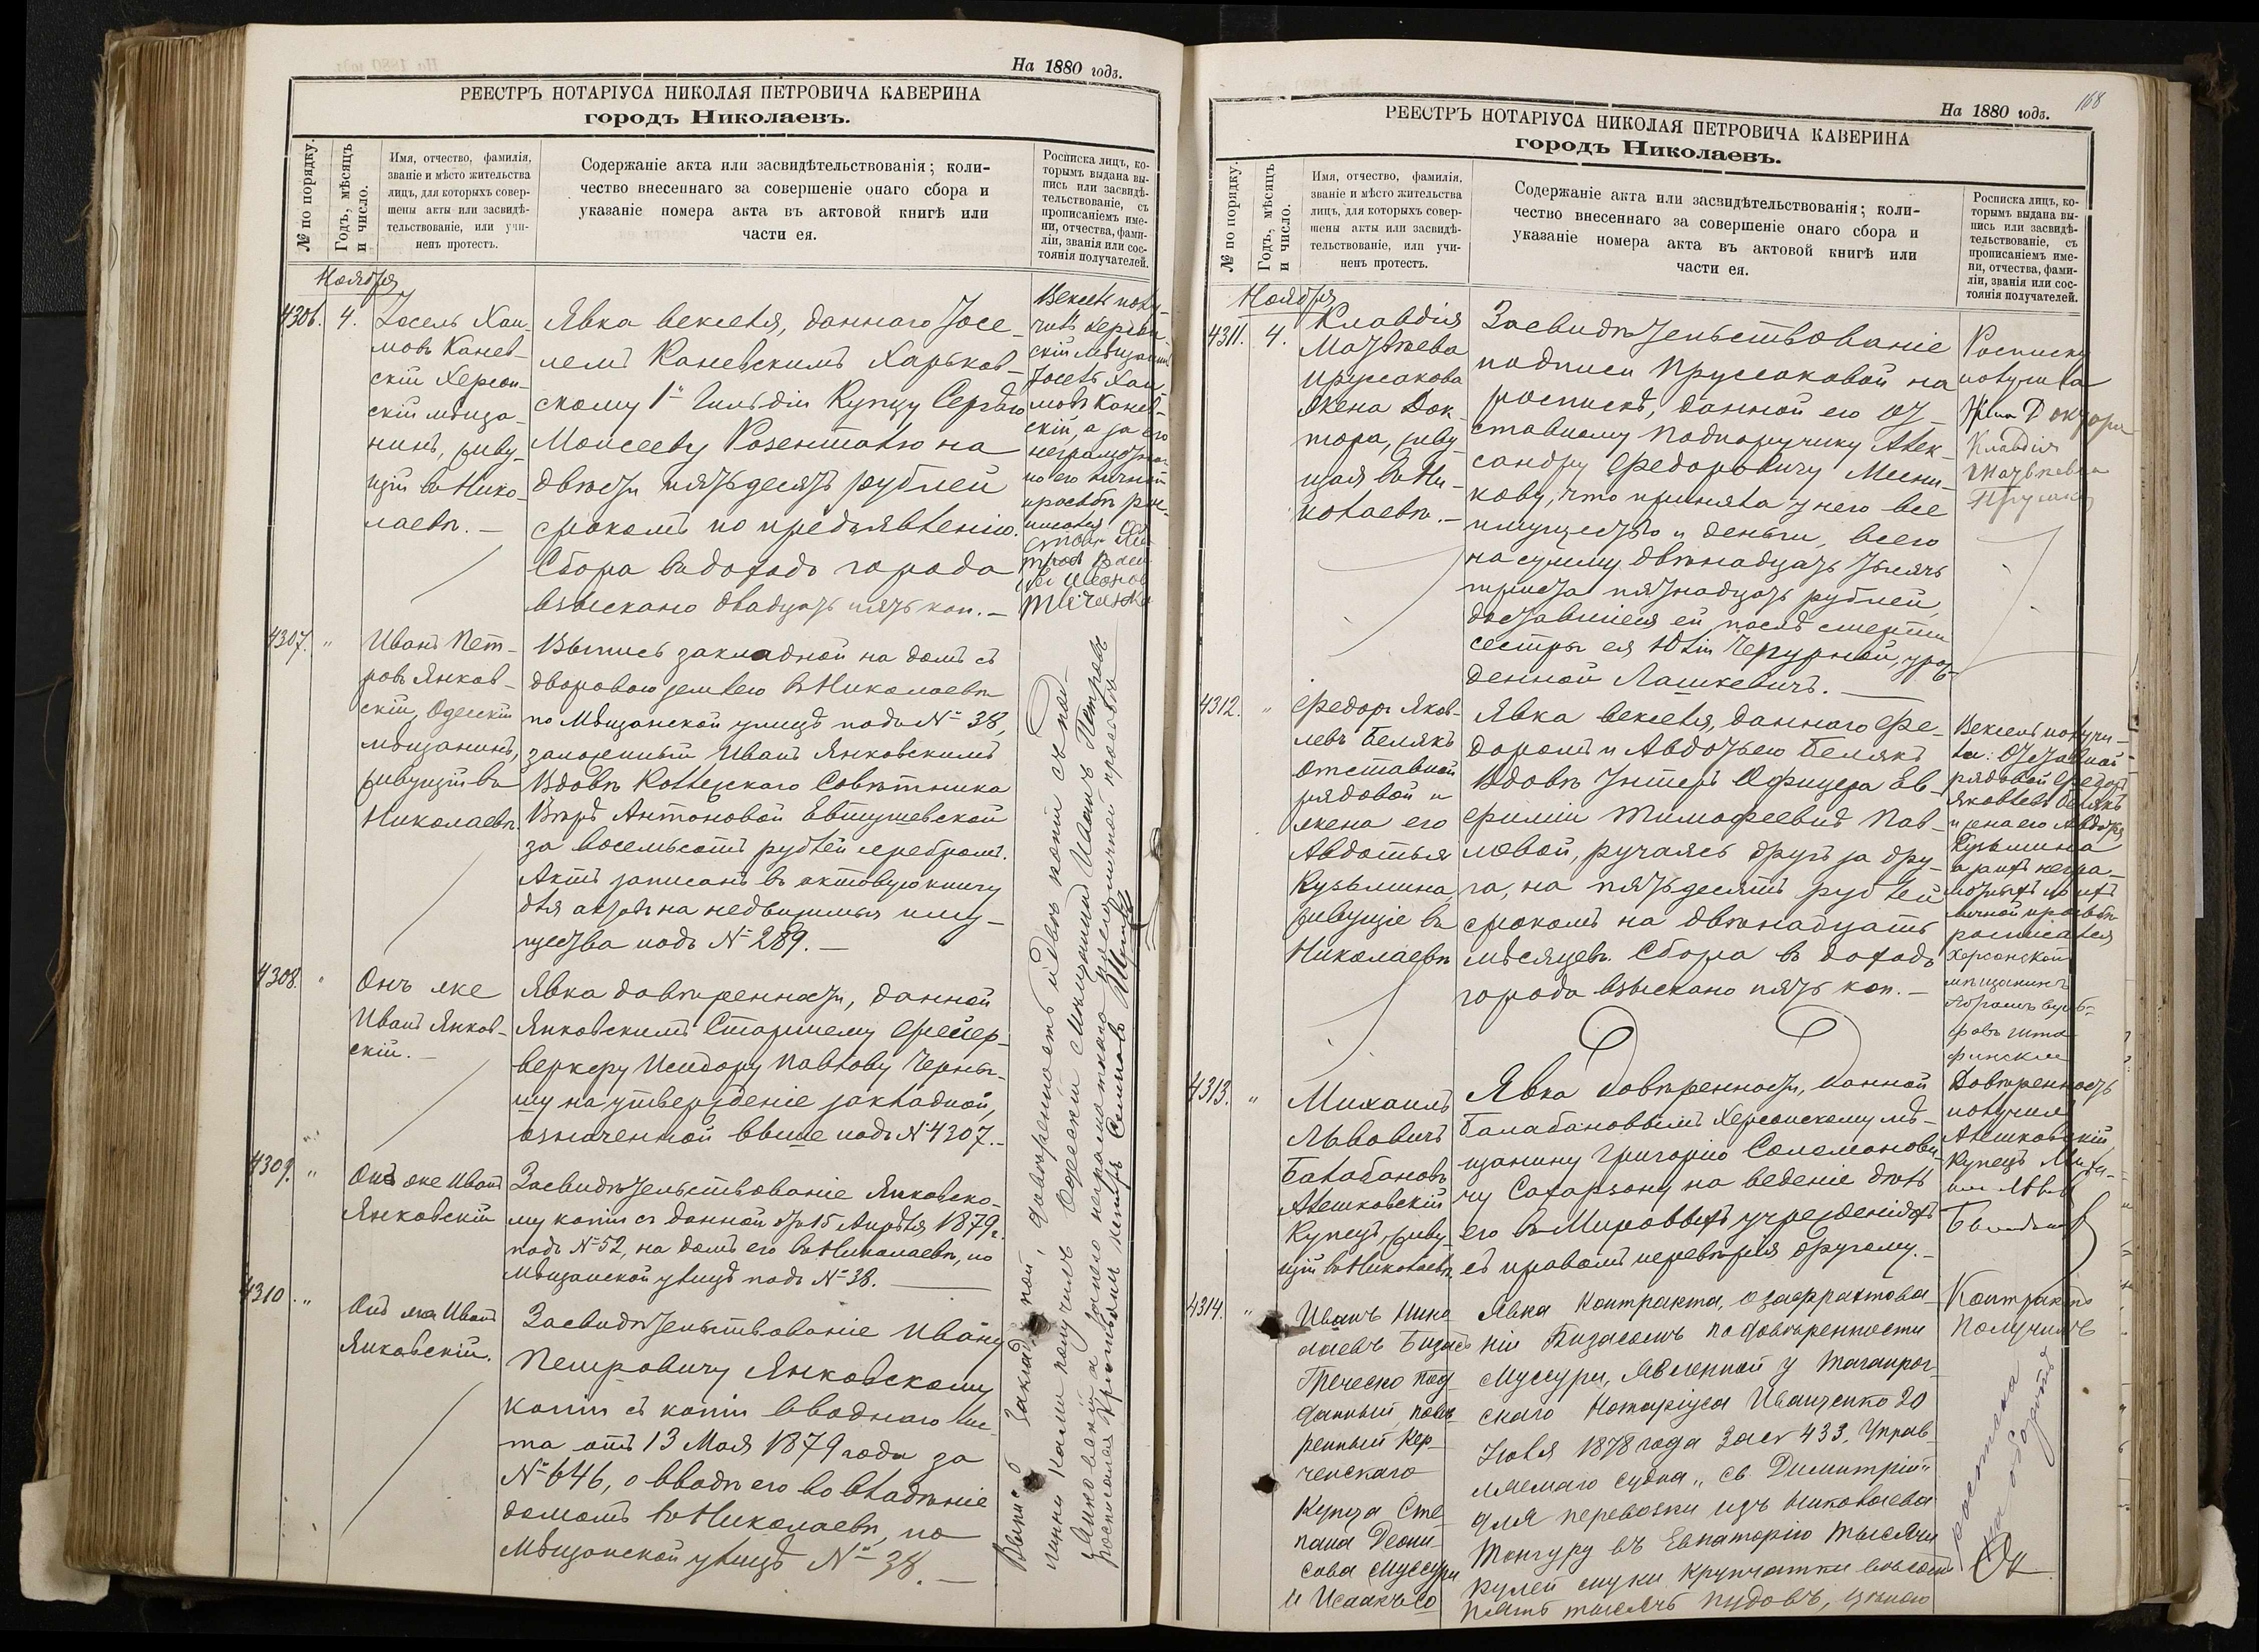 На 1880 годъ.
РЕЕСТРЪ НОТАРІУСА НИКОЛАЯ ПЕТРОВИЧА КАВЕРИНА
городъ Николаевъ.
№ по порядку.
Годъ, мѣсяцъ
и число.
Имя, отчество, фамилія,
званіе и мѣсто жительства
лицъ, для которыхъ совер-
шены акты или засвидѣ-
тельствованіе, или учи-
ненъ протестъ.
Содержаніе акта или засвидѣтельствованія; коли-
чество внесеннаго за совершеніе онаго сбора и
указаніе номера акта въ актовой книгѣ или
части ея.
Росписка лицъ, ко-
торымъ выдана вы-
пись или засвидѣ-
тельствованіе, съ
прописаніемъ име-
ни, отчества, фами-
ліи, званія или сос-
тоянія получателей.
Ноября
4306. 4.
Іосель Хаи-
мовъ Канев-
скій Херсон-
скій мѣща-
нинъ, живу-
щій въ Нико-
лаевѣ.—
Явка векселя, даннаго Іосе-
лемъ Каневскимъ Харьков-
скому 1й Гильдіи Купцу Сергѣю
Моисееву Розенталю на
двѣсти пятьдесятъ рублей
срокомъ по предъявленію.
Сбора въ доходъ города
взыскано двадцать пять коп.—
Вексель полу-
чилъ Херсон-
скій мѣщанинъ
Іосель Хаи-
мовъ Канев-
скій, а за его
неграмотно-
по его личной
просьбѣ рос-
писался
4307. "
Иванъ Пет-
ровъ Янков-
скій, Одесскій
мѣщанинъ,
живущій въ
Николаевѣ.
Выпись закладной на домъ съ
дворовою землею въ Николаевѣ
по Мѣщанской улицѣ подъ № 38,
заложенный Иваномъ Янковскимъ
Вдовѣ Коллежскаго Совѣтника
Вѣрѣ Антоновой Евтушевской
за восемьсотъ рублей серебромъ.
Актъ записанъ въ актовую книгу
для актовъ на недвижимыя иму-
щества подъ № 289.—
4308. "
Онъ же
Иванъ Янков-
скій.—
Явка довѣренности, данной
Янковскимъ Старшему Фейер-
веркеру Исидору Павлову Черны-
шу на утвержденіе закладной,
означенной выше подъ № 4307.—
4309. "
Онъ же Иванъ
Янковскій
Засвидѣтельствованіе Янковско-
му копіи съ данной отъ 15 Апрѣля 1879 г.
подъ № 52, на домъ его въ Николаевѣ, по
Мѣщанской улицѣ подъ № 38.
4310. "
Онъ же Иванъ
Янковскій.
Засвидѣтельствованіе Ивану
Петровичу Янковскому
копіи съ копіи вводнаго лис-
та отъ 13 Мая 1879 года за
№ 646, о вводѣ его во владѣніе
домомъ въ Николаевѣ, по
Мѣщанской улицѣ № 38.—
Выпись закладной, довѣренность и двѣ копіи съ под-
линниками получилъ Одесскій мѣщанинъ Иванъ Петровъ
Янковскій а за него неграмотнаго по его личной просьбѣ
росписался
168
На 1880 годъ.
РЕЕСТРЪ НОТАРІУСА НИКОЛАЯ ПЕТРОВИЧА КАВЕРИНА
городъ Николаевъ.
№ по порядку.
Годъ, мѣсяцъ
и число.
Имя, отчество, фамилія,
званіе и мѣсто жительства
лицъ, для которыхъ совер-
шены акты или засвидѣ-
тельствованіе, или учи-
ненъ протестъ.
Содержаніе акта или засвидѣтельствованія; коли-
чество внесеннаго за совершеніе онаго сбора и
указаніе номера акта въ актовой книгѣ или
части ея.
Росписка лицъ, ко-
торымъ выдана вы-
пись или засвидѣ-
тельствованіе, съ
прописаніемъ име-
ни, отчества, фами-
ліи, званія или сос-
тоянія получателей.
Ноября
4311. 4.
Клавдія
Матвѣева
Пруссакова
жена Док-
тора, живу-
щая въ Ни-
колаевѣ.—
Засвидѣтельствованіе
подписи Пруссаковой на
роспискѣ, данной ею от-
ставному подпоручику Алек-
сандру Федоровичу Месни-
кову, что приняла у него все
имущество и деньги, всего
на сумму двѣнадцать тысячъ
триста пятнадцать рублей,
доставшіеся ей послѣ смерти
сестры ея Юліи Чепурной, урож-
денной Лашкевичъ.—
Росписку
получила
Жена Доктора
Клавдія
Матвѣевна
4312. "
Федоръ Яков-
левъ Белякъ
Отставной
рядовой и
жена его
Авдотья
Кузьмина,
живущіе въ
Николаевѣ
Явка векселя, даннаго Фе-
доромъ и Авдотьею Белякъ
Вдовѣ Унтеръ Офицера Ев-
фиміи Тимофеевнѣ Пав-
ловой, ручаясь другъ за дру-
га, на пятьдесятъ рублей
срокомъ на двѣнадцать
мѣсяцевъ. Сбора въ доходъ
города взыскано пять коп.—
Вексель получи-
ли: Отставной
рядовой Федоръ
Яковлевъ Белякъ
и жена его Авдотья
Кузьмина
а за ихъ негра-
мотныхъ по ихъ
личной просьбѣ
росписался
Херсонскій
мѣщанинъ
4313. "
Михаилъ
Львовичъ
Балабановъ
Алешковскій
Купецъ, живу-
щій въ Николаевѣ
Явка довѣренности, данной
Балабановымъ Херсонскому мѣ-
щанину Григорію Соломонови-
чу Сахарзону на веденіе дѣлъ
его въ Мировыхъ учрежденіяхъ
съ правомъ передовѣрія другому.—
Довѣренность
получилъ
Алешковскій
Купецъ
4314. "
Иванъ Нико-
лаевъ Бизасъ
Греческо под-
данный, повѣ-
ренный Кер-
ченскаго
Купца Сте-
пана Деони-
сова Муссури
и Исаакъ Со
Явка контракта, о зафрахтова-
ніи Бизасомъ по довѣренности
Муссури, явленной у Таганрог-
скаго Нотаріуса Иващенко 20
Іюля 1878 года за № 433, Управ-
ляемаго судна „Св. Димитрій"
для перевозки изъ Николаева
въ Евпаторію тысячи
кулей муки крупчатки вѣсомъ
пять тысячъ пудовъ, цѣною
Контрактъ
получилъ
росписка
на оборотѣ